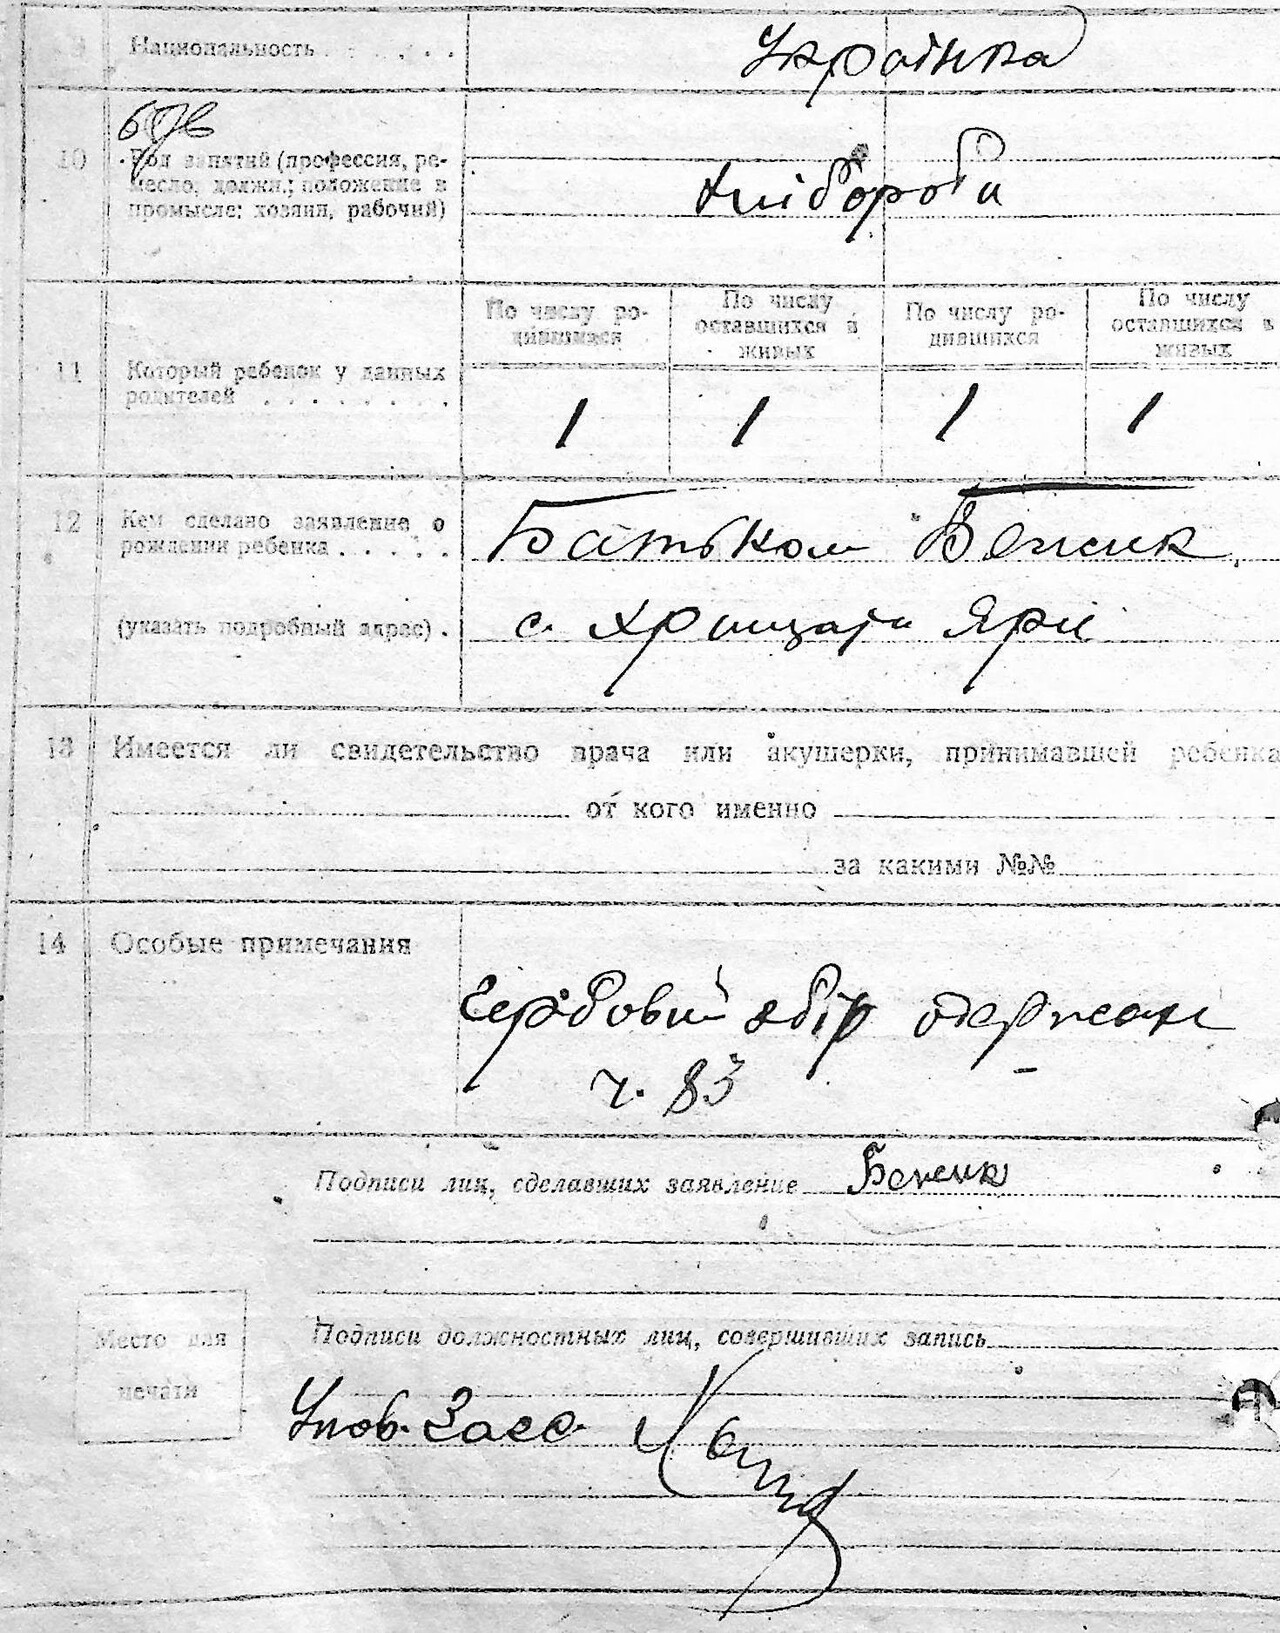 9 Национальность . . . . . . Українка
10 Род занятий (профессия, ре-
месло, должн.; положение в
промысле: хозяин, рабочий)
Хлібороби
По числу ро-
дившихся
По числу
оставшихся в
живых
По числу ро-
дившихся
По числу
оставшихся в
живых
11 Который ребенок у данных
родителей . . . . . . . .
1 1 1 1
12 Кем сделано заявление о
рождении ребенка . . . . .
Батьком
(указать подробный адрес) .
с. Хрищаті Яри
13 Имеется ли свидетельство врача или акушерки, принимавшей ребенка
от кого именно
за какими №№
14 Особые примечания
Гербовий збір одержан
ч. 83
Подписи лиц, сделавших заявление
Место для
печати
Подписи должностных лиц, совершивших запись
Упов. Загс.